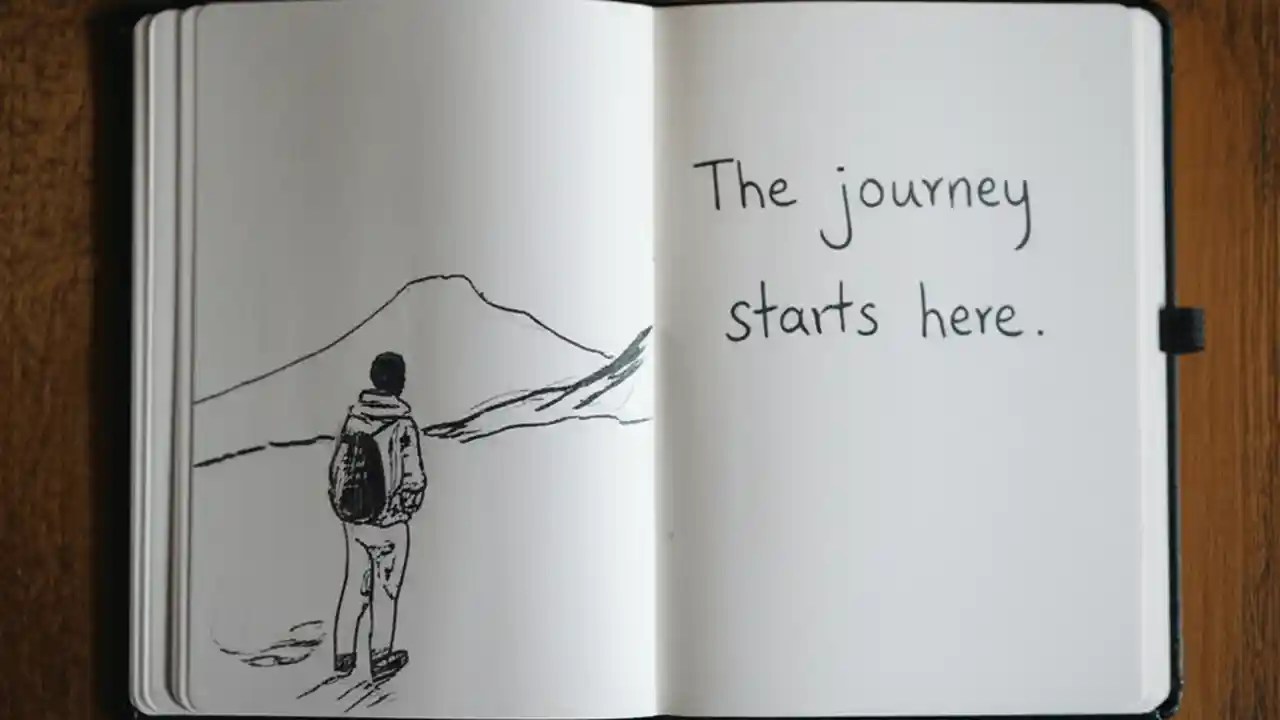 The journey
starts here.